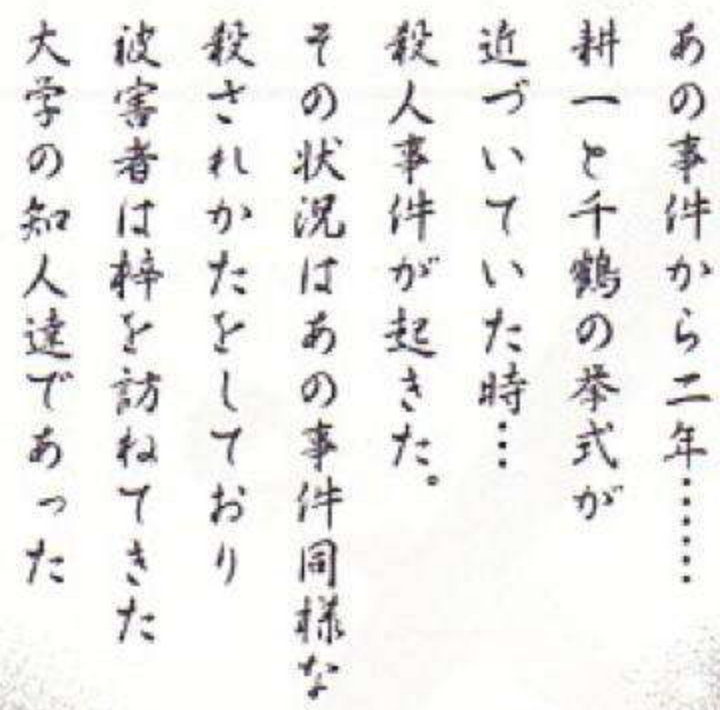 あの事件から二年……
耕一と千鶴の挙式が
近づいていた時…
殺人事件が起きた。
その状況はあの事件同様な
殺されかたをしており
被害者は梓を訪ねてきた
大学の知人達であった